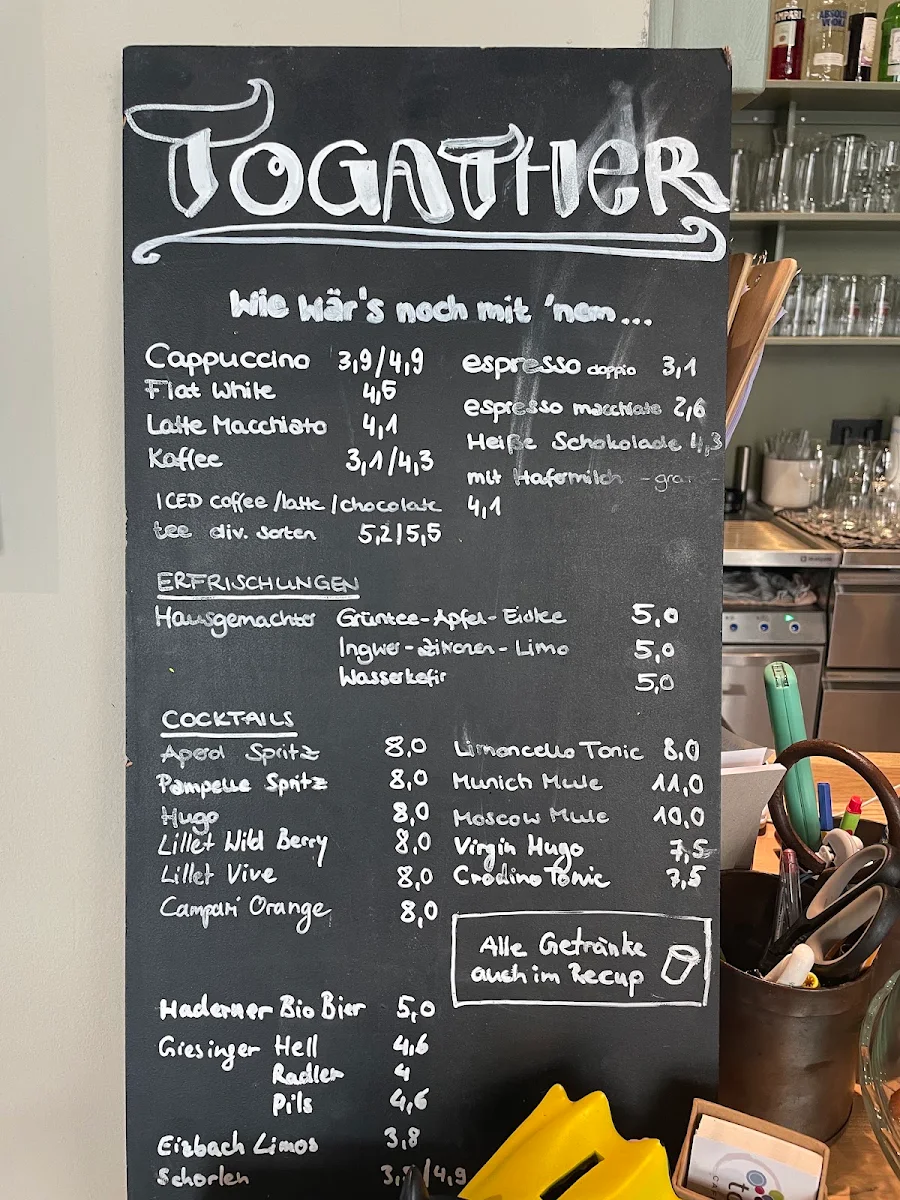 TOGATHER
Wie wär's noch mit 'nem...
Cappuccino 3,9/4,9
Flat White 4,5
Latte Macchiato 4,1
Kaffee 3,1/4,3
espresso doppio 3,1
espresso macchiato 2,6
Heiße Schokolade 4,3
mit Hafermilch
ICED coffee/latte/chocolate 4,1
tee div. sorten 5,2/5,5
ERFRISCHUNGEN
Hausgemachter Grüntee-Apfel-Eistee 5,0
Ingwer-Zitronen-Limo 5,0
Wasserkefir 5,0
COCKTAILS
Aperol Spritz 8,0
Pampelle Spritz 8,0
Hugo 8,0
Lillet Wild Berry 8,0
Lillet Vive 8,0
Campari Orange 8,0
Limoncello Tonic 8,0
Munich Mule 11,0
Moscow Mule 10,0
Virgin Hugo 7,5
Crodino Tonic 7,5
Alle Getränke
auch im Recup
Haderner Bio Bier 5,0
Giesinger Hell 4,6
Radler 4
Pils 4,6
Eisbach Limos 3,8
Schorlen /4,9
CAMPARI
ABSOLUT
VODKA